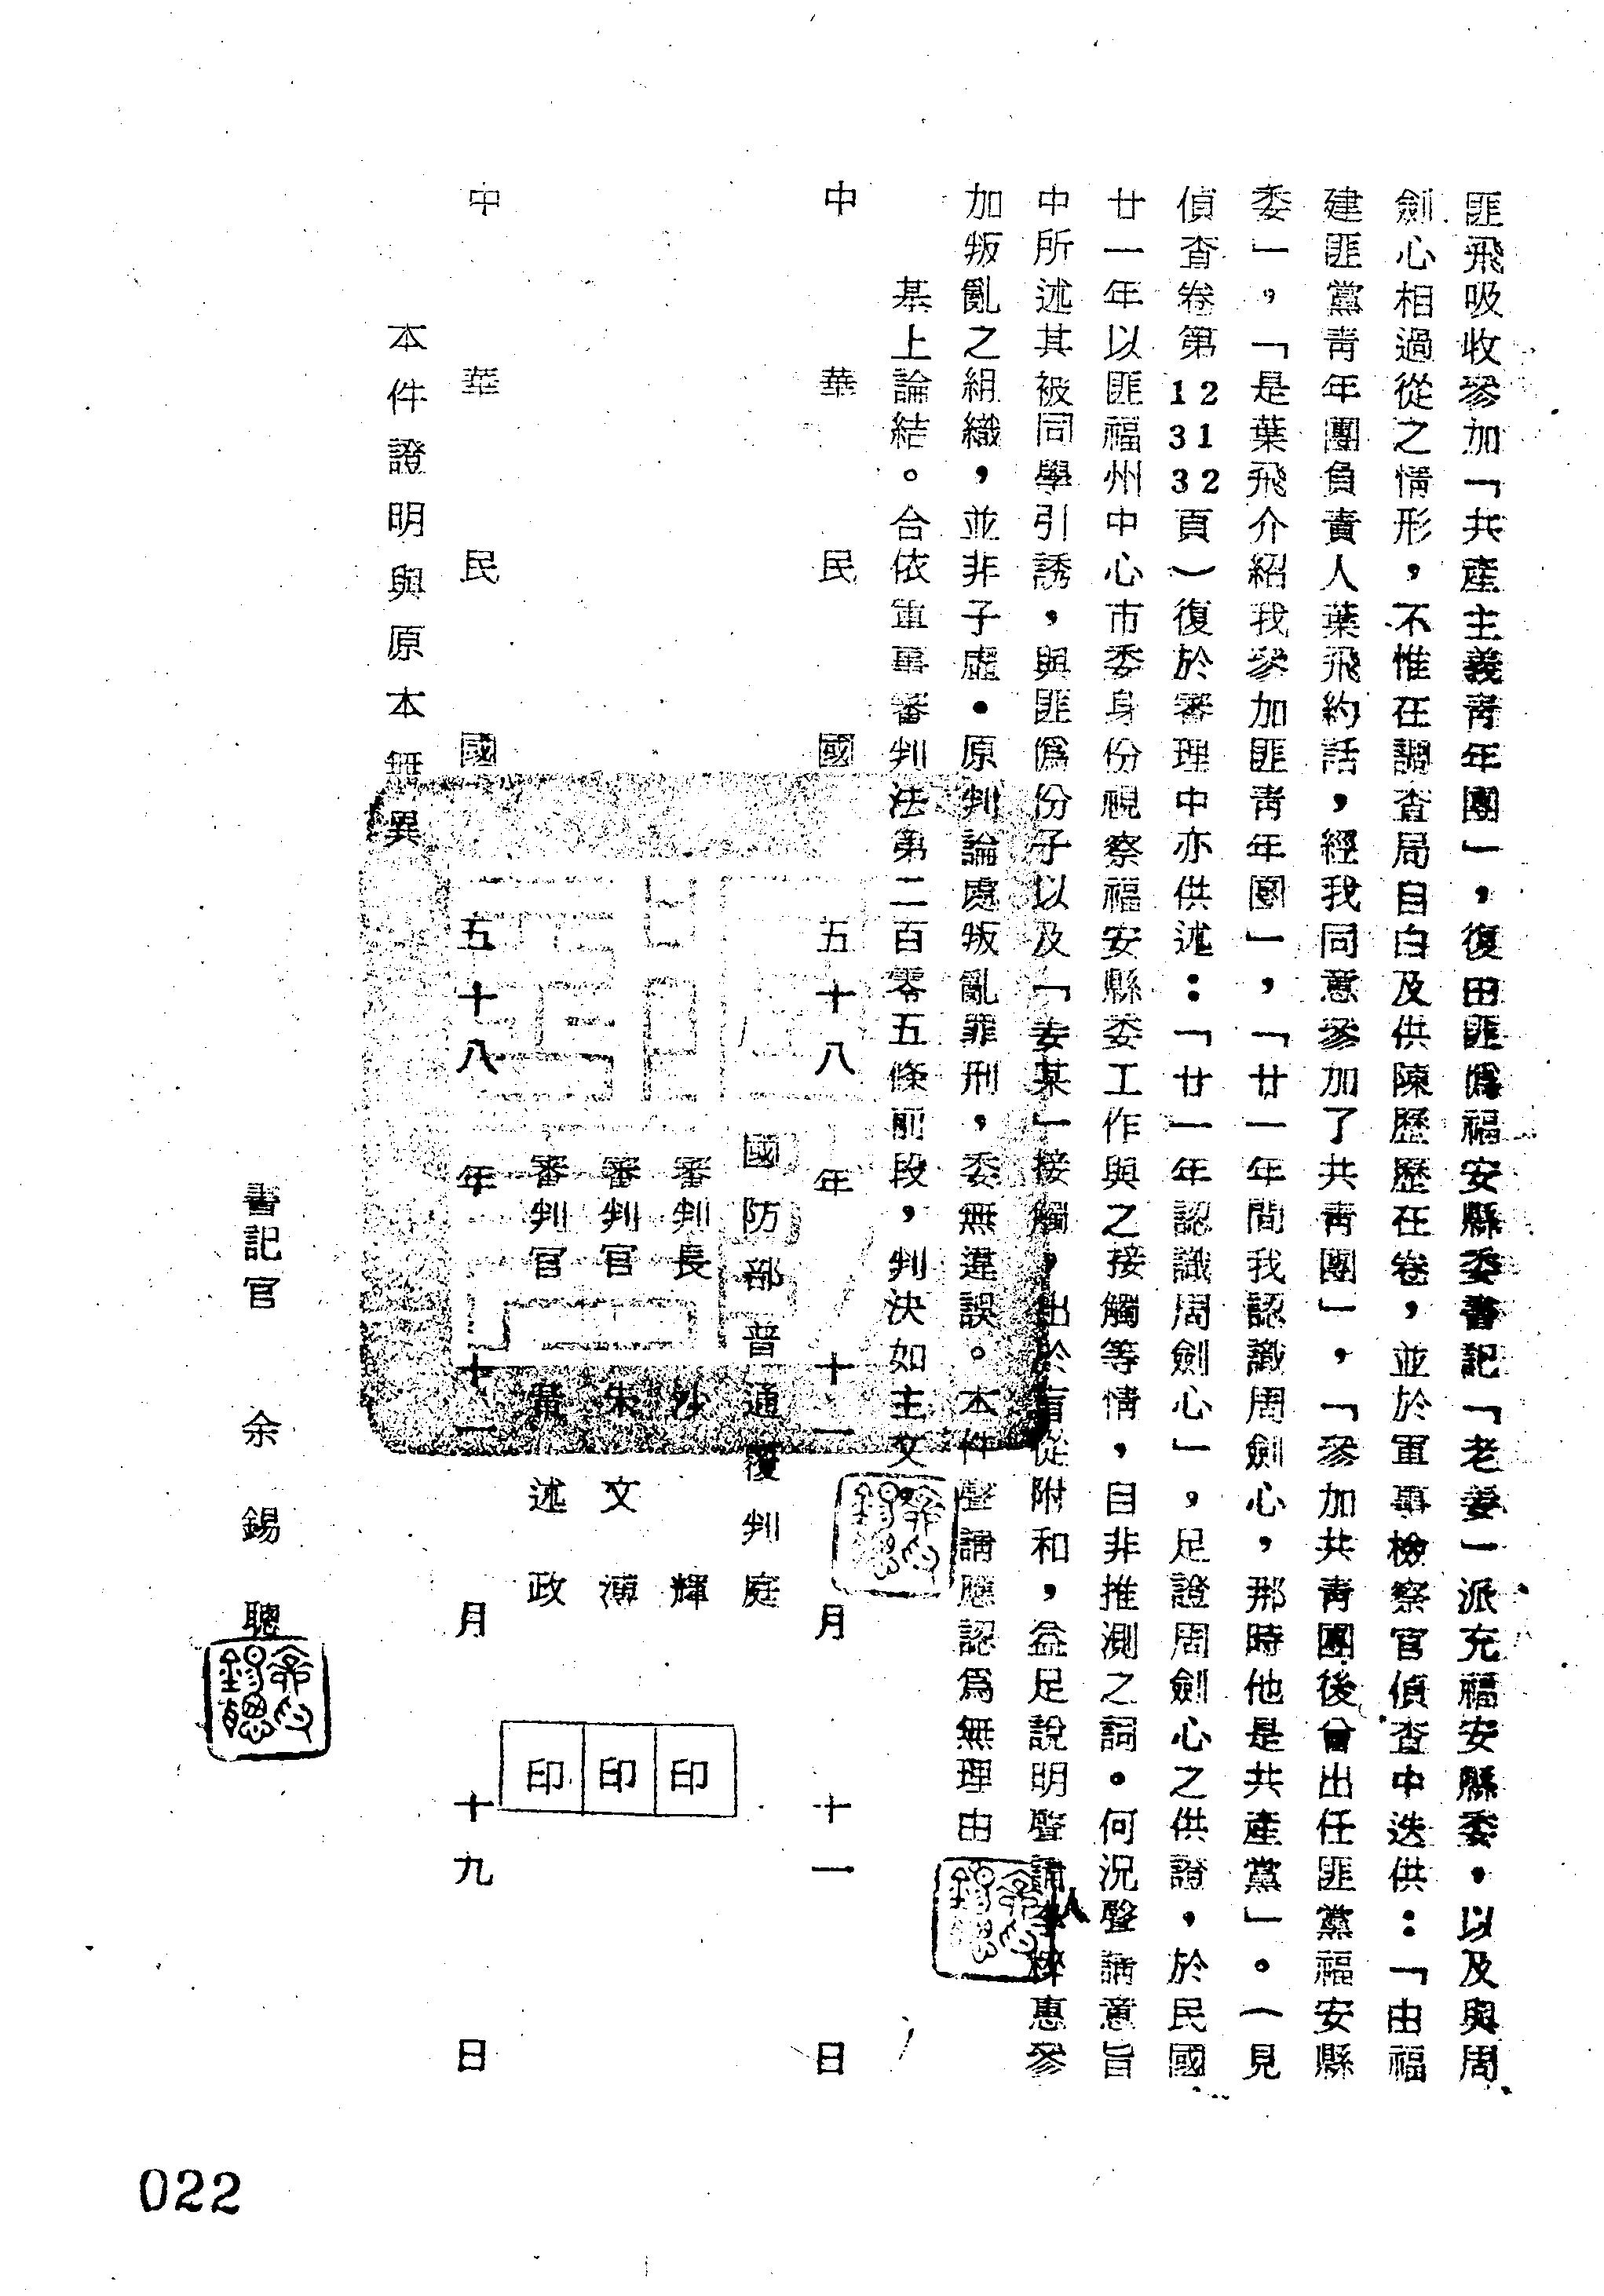 匪飛吸收參加「共產主義青年團」，復由匪偽福安縣委書記「老姜」派充福安縣委，以及與周
劍心相過從之情形，不惟在調查局自白及供陳歷歷在卷，並於軍事檢察官偵查中迭供：「由福
建匪黨青年團負責人葉飛約話，經我同意參加了共青團」，「參加共青團後曾出任匪黨福安縣
委」，「是葉飛介紹我參加匪青年團」，「廿一年間我認識周劍心，那時他是共產黨」。（見
偵查卷第12 31 32頁）復於審理中亦供述：「廿一年認識周劍心」，足證周劍心之供證，於民國
廿一年以匪福州中心市委身份視察福安縣委工作與之接觸等情，自非推測之詞。何況聲請意旨
中所述其被同學引誘，與匪偽份子以及「姜某」接觸，出於盲從附和，益足說明聲請人李梓惠參
加叛亂之組織，並非子虛．原判論處叛亂罪刑，委無違誤。本件聲請應認為無理由
基上論結。合依軍事審判法第二百零五條前段，判決如主文。
中華民國五十八年十一月十一日
國防部普通覆判庭
審判長 沙 輝 印
審判官 朱文溥 印
審判官 黃述政 印
中華民國五十八年十一月十九日
本件證明與原本無異
書記官 余錫聰
022